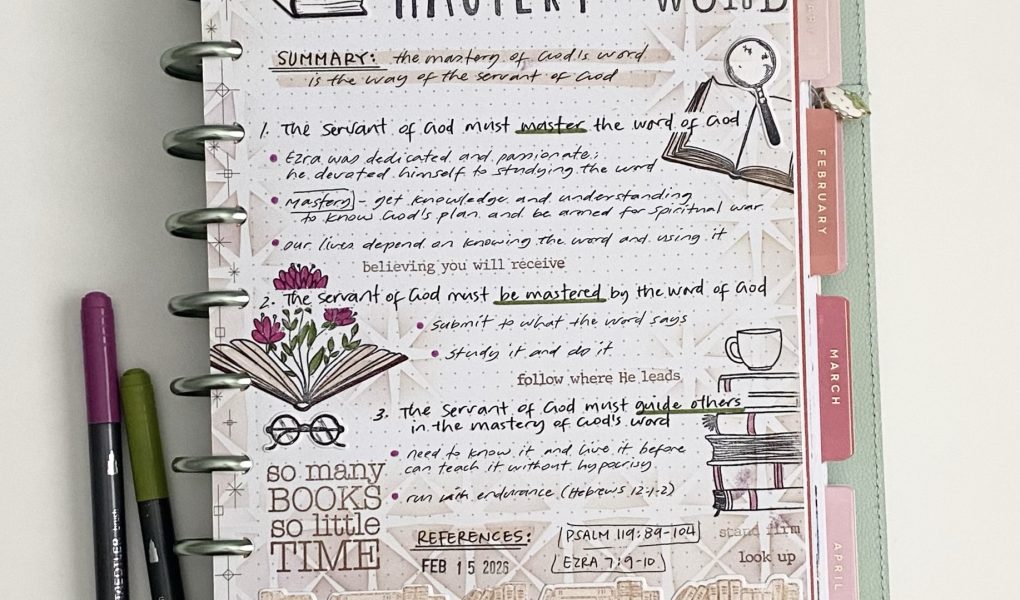 MASTERY WORD
SUMMARY: the mastery of God's word
is the way of the servant of God
1. The servant of God must master the word of God
Ezra was dedicated and passionate;
he devoted himself to studying the word
Mastery - get knowledge and understanding
to know God's plan and be armed for spiritual war
our lives depend on knowing the word and using it
believing you will receive
2. The servant of God must be mastered by the word of God
submit to what the word says
study it and do it
follow where He leads
3. The servant of God must guide others
in the mastery of God's word
need to know it and live it before
can teach it without hypocrisy
run with endurance (Hebrews 12:1-2)
so many
BOOKS
so little
TIME
REFERENCES: PSALM 119:89-104
FEB 15 2026 EZRA 7:9-10
stand firm
look up
FEBRUARY
MARCH
APRIL